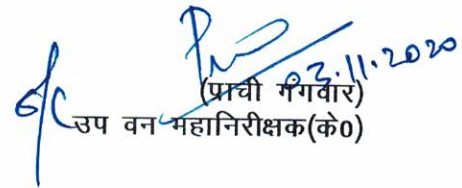 03.11.2020
(प्राची गंगवार)
o/c
उप वन महानिरीक्षक(के0)